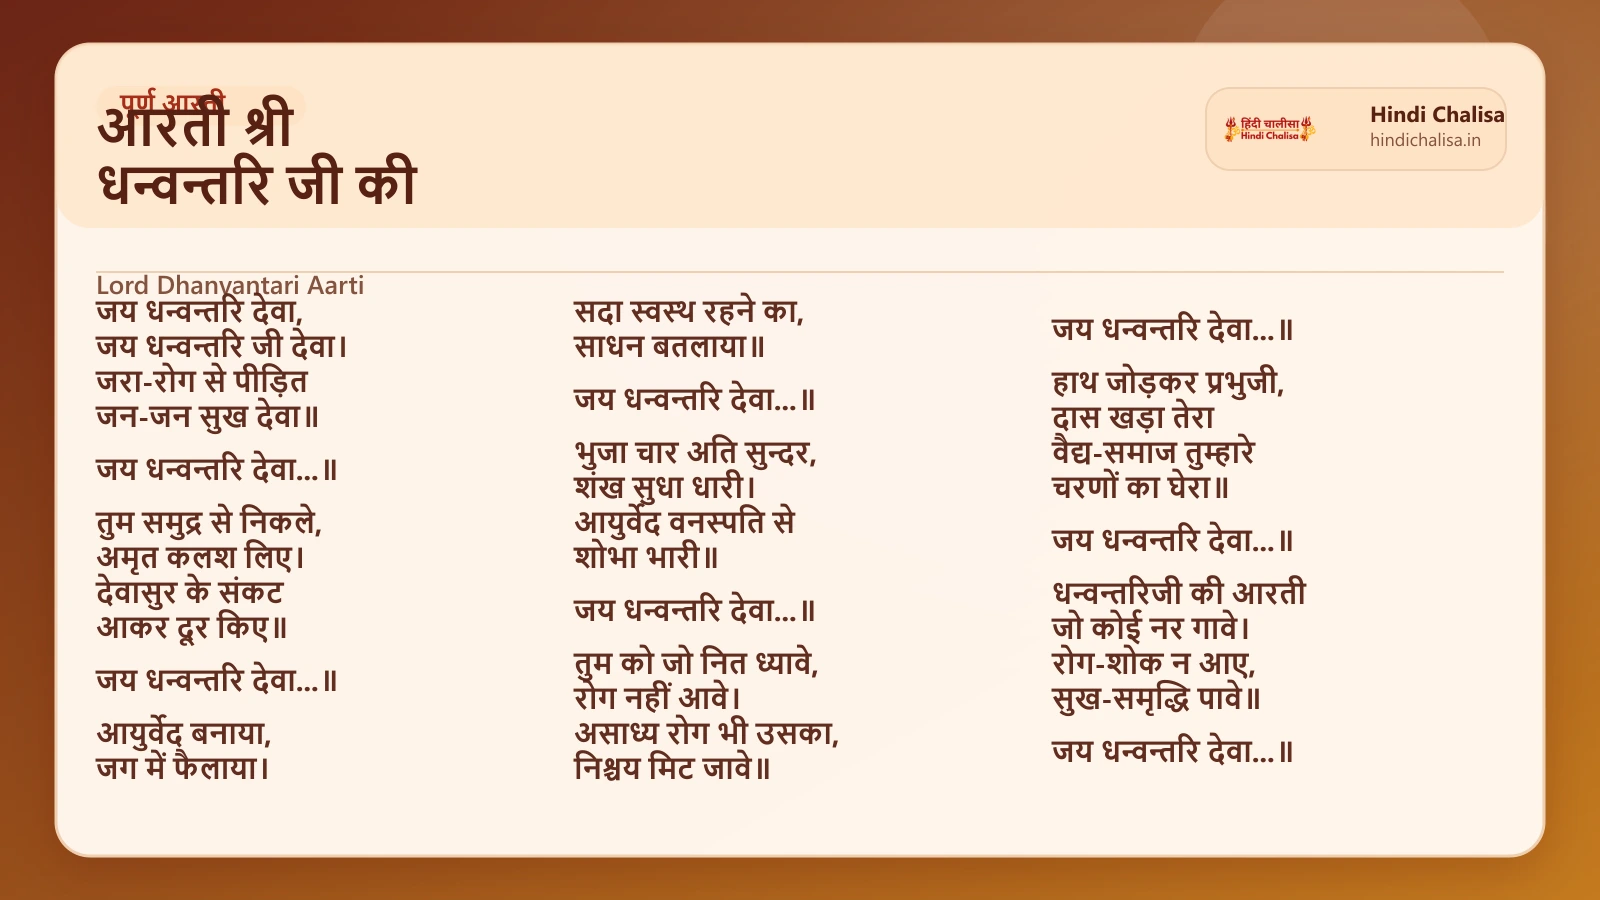 पूर्ण आरती
आरती श्री
धन्वन्तरि जी की
हिंदी चालीसा
Hindi Chalisa
Hindi Chalisa
hindichalisa.in
Lord Dhanvantari Aarti
जय धन्वन्तरि देवा,
जय धन्वन्तरि जी देवा।
जरा-रोग से पीड़ित
जन-जन सुख देवा॥
जय धन्वन्तरि देवा...॥
तुम समुद्र से निकले,
अमृत कलश लिए।
देवासुर के संकट
आकर दूर किए॥
जय धन्वन्तरि देवा...॥
आयुर्वेद बनाया,
जग में फैलाया।
सदा स्वस्थ रहने का,
साधन बतलाया॥
जय धन्वन्तरि देवा...॥
भुजा चार अति सुन्दर,
शंख सुधा धारी।
आयुर्वेद वनस्पति से
शोभा भारी॥
जय धन्वन्तरि देवा...॥
तुम को जो नित ध्यावे,
रोग नहीं आवे।
असाध्य रोग भी उसका,
निश्चय मिट जावे॥
जय धन्वन्तरि देवा...॥
हाथ जोड़कर प्रभुजी,
दास खड़ा तेरा
वैद्य-समाज तुम्हारे
चरणों का घेरा॥
जय धन्वन्तरि देवा...॥
धन्वन्तरिजी की आरती
जो कोई नर गावे।
रोग-शोक न आए,
सुख-समृद्धि पावे॥
जय धन्वन्तरि देवा...॥